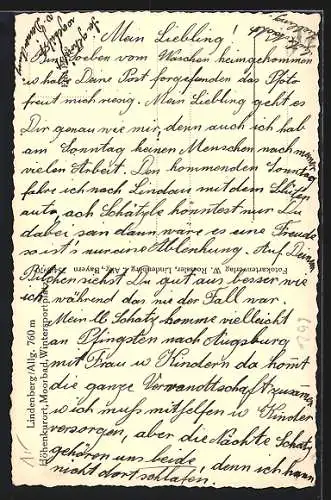 Mein Liebling!
Bin soeben vom Waschen heimgekommen
u habe Deine Post vorgefunden das Foto
freut mich riesig. Mein Liebling geht es
Dir genau wie mir, denn auch ich hab
am Sonntag keinen Menschen nach meiner
vielen Arbeit. Den kommenden Sonntag
fahre ich nach Lindau mit dem
auto, ach Schätzle könntest nur Du
dabei sein dann wäre es eine Freude
so ist's nur eine Ablenkung. Auf Deinem
Bildchen siehst Du gut aus besser wie
ich während das nie der Fall war.
Mein lb Schatz, komme vielleicht
an Pfingsten nach Augsburg
mit Frau u Kindern da kommt
die ganze Verwandtschaft zusammen
u ich muß mithelfen u Kinder
versorgen, aber die Nächte Schatz
gehören uns beide, denn ich kann
nicht dort schlafen!
Lindenberg/Allg. 760 m
Höhenkurort, Moorbad, Wintersportplatz
Fotokartenverlag W. Roessler, Lindenberg i. Allg., Bayern